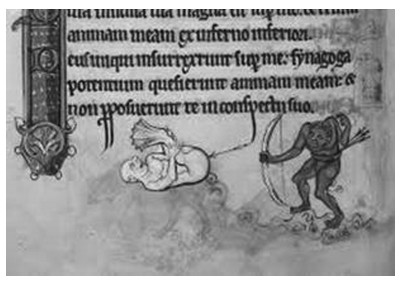 magna est sup me.
animam meam ex inferno inferiori.
eus iniqui insurrexerunt sup me: synagoga
potentium quesierunt animam meam: &
non pposuerunt te in conspectu suo.